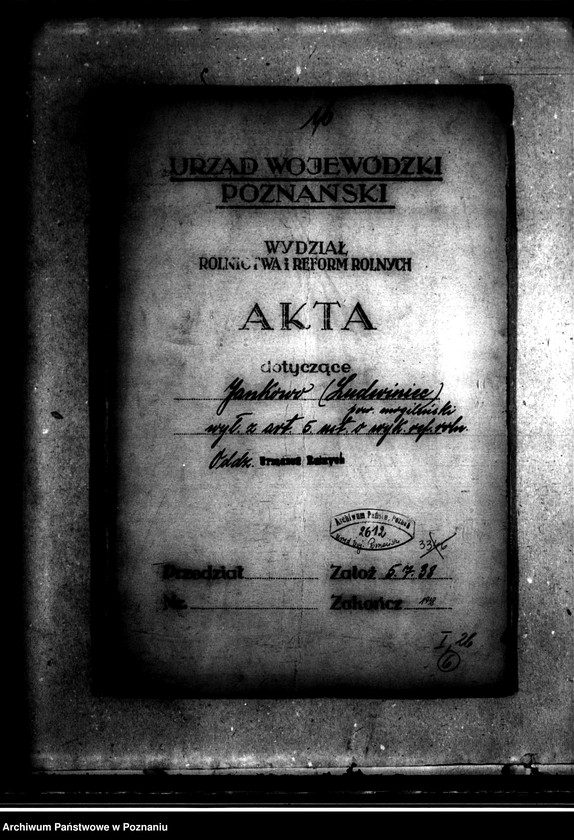 16
URZĄD WOJEWÓDZKI
POZNAŃSKI
WYDZIAŁ
ROLNICTWA I REFORM ROLNYCH
AKTA
dotyczące
Jankowo (Ludwiniec)
pow. mogileński
wył. z art. 5 ust. o wyk. ref. roln.
Oddz. Urządzeń Rolnych
Archiwum Państw. Poznań
2612
Przedział
Założ 5.7.38
Nr.
Zakończ 198
I 26
6
Archiwum Państwowe w Poznaniu